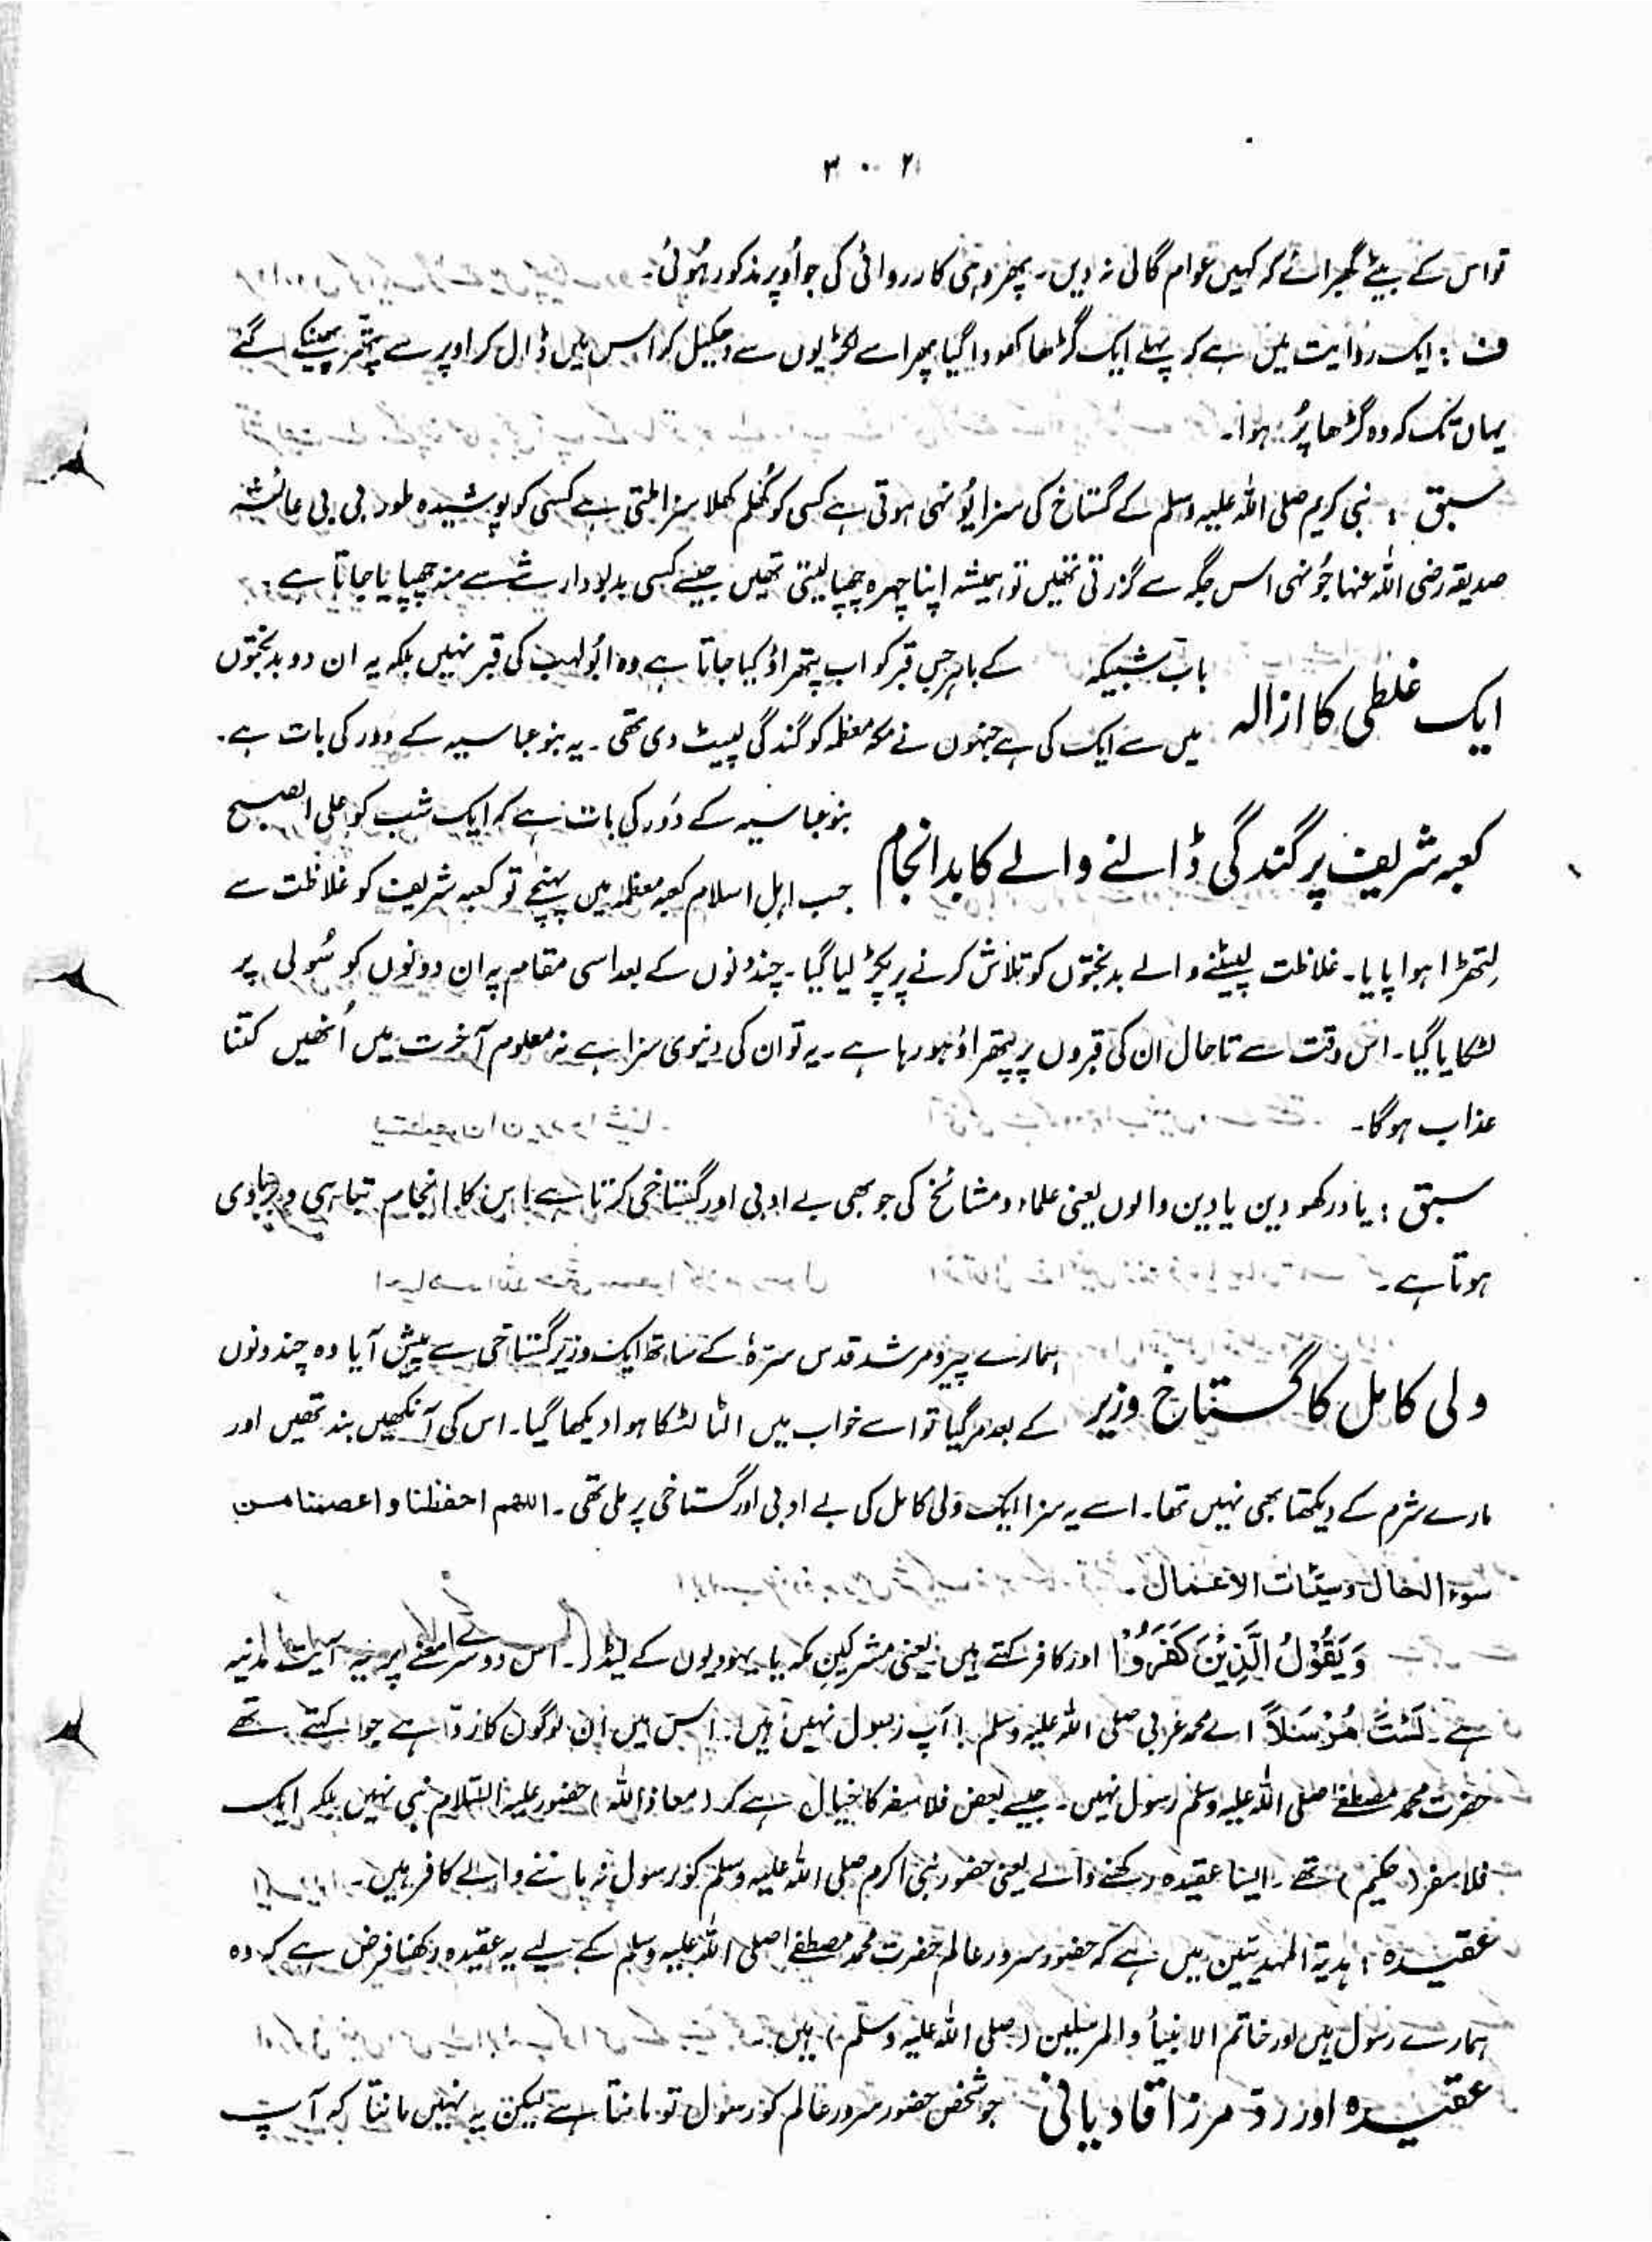 ۳۰۲
تو اس کے بیٹے گھبرائے کہ کہیں عوام گالی نہ دیں۔ پھر وہی کارروائی کی جو اُوپر مذکور ہُوئی۔
ف : ایک روایت میں ہے کہ پہلے ایک گڑھا کھودا گیا پھر اسے لکڑیوں سے دھکیل کر اس میں ڈال کر اوپر سے پتھر پھینکے گئے
یہاں تک کہ وہ گڑھا پُر ہوا۔
سبق : نبی کریم صلی اللہ علیہ وسلم کے گستاخ کی سزا یُونہی ہوتی ہے کسی کو کُھلم کھلا سزا ملتی ہے کسی کو پوشیدہ طور بی بی عائشہ
صدیقہ رضی اللہ عنہا جُونہی اس جگہ سے گزرتی تھیں تو ہمیشہ اپنا چہرہ چھپا لیتی تھیں جیسے کسی بدبودار شے سے منہ چھپایا جاتا ہے۔
ایک غلطی کا ازالہ
باب شبیکہ کے باہر جس قبر کو اب پتھراؤ کیا جاتا ہے وہ ابُولہب کی قبر نہیں بلکہ یہ ان دو بدبختوں
میں سے ایک کی ہے جنہوں نے مکہ معظمہ کو گندگی لپیٹ دی تھی۔ یہ بنو عباسیہ کے دور کی بات ہے۔
کعبہ شریف پر گندگی ڈالنے والے کا بد انجام
بنو عباسیہ کے دَور کی بات ہے کہ ایک شب کو علی الصبح
جب اہلِ اسلام کعبہ معظمہ میں پہنچے تو کعبہ شریف کو غلاظت سے
لِتھڑا ہوا پایا۔ غلاظت لپیٹنے والے بدبختوں کو تلاش کرنے پر پکڑ لیا گیا۔ چند دنوں کے بعد اسی مقام پہ ان دونوں کو سُولی پر
لٹکایا گیا۔ اس وقت سے تاحال ان کی قبروں پر پتھراؤ ہو رہا ہے۔ یہ تو ان کی دنیوی سزا ہے نہ معلوم آخرت میں اُنھیں کتنا
عذاب ہوگا۔
سبق : یاد رکھو دین یا دین والوں یعنی علماء و مشائخ کی جو بھی بے ادبی اور گستاخی کرتا ہے اس کا انجام تباہی و بربادی
ہوتا ہے۔
ولی کامل کا گستاخ وزیر
ہمارے پیر و مرشد قدس سرّہٗ کے ساتھ ایک وزیر گستاخی سے پیش آیا وہ چند دنوں
کے بعد مر گیا تو اسے خواب میں الٹا لٹکا ہوا دیکھا گیا۔ اس کی آنکھیں بند تھیں اور
مارے شرم کے دیکھتا بھی نہیں تھا۔ اسے یہ سزا ایک ولی کامل کی بے ادبی اور گستاخی پر ملی تھی۔ اللھم احفظنا و اعصمنا من
سوء الحال و سیئات الاعمال۔
وَیَقُوْلُ الَّذِیْنَ کَفَرُوْا اور کافر کہتے ہیں یعنی مشرکینِ مکہ یا یہودیوں کے لیڈر۔ اس دوسرے معنے پر یہ آیت مدنیہ
ہے۔ لَسْتَ مُرْسَلاً اے محمد عربی صلی اللہ علیہ وسلم ! آپ رسول نہیں ہیں۔ اس میں ان لوگوں کا ردّ ہے جو کہتے تھے
حضرت محمد مصطفےٰ صلی اللہ علیہ وسلم رسول نہیں۔ جیسے بعض فلاسفر کا خیال ہے کہ (معاذ اللہ) حضور علیہ السّلام نبی نہیں بلکہ ایک
فلاسفر (حکیم) تھے۔ ایسا عقیدہ رکھنے والے یعنی حضور نبی اکرم صلی اللہ علیہ وسلم کو رسول نہ ماننے والے کافر ہیں۔
عقیدہ : ہدیۃ المہدیین میں ہے کہ حضور سرور عالم حضرت محمد مصطفےٰ صلی اللہ علیہ وسلم کے لیے یہ عقیدہ رکھنا فرض ہے کہ وہ
ہمارے رسول ہیں اور خاتم الانبیأ والمرسلین (صلی اللہ علیہ وسلم) ہیں۔
عقیدہ اور ردّ مرزا قادیانی جو شخص حضور سرور عالم کو رسول تو مانتا ہے لیکن یہ نہیں مانتا کہ آپ